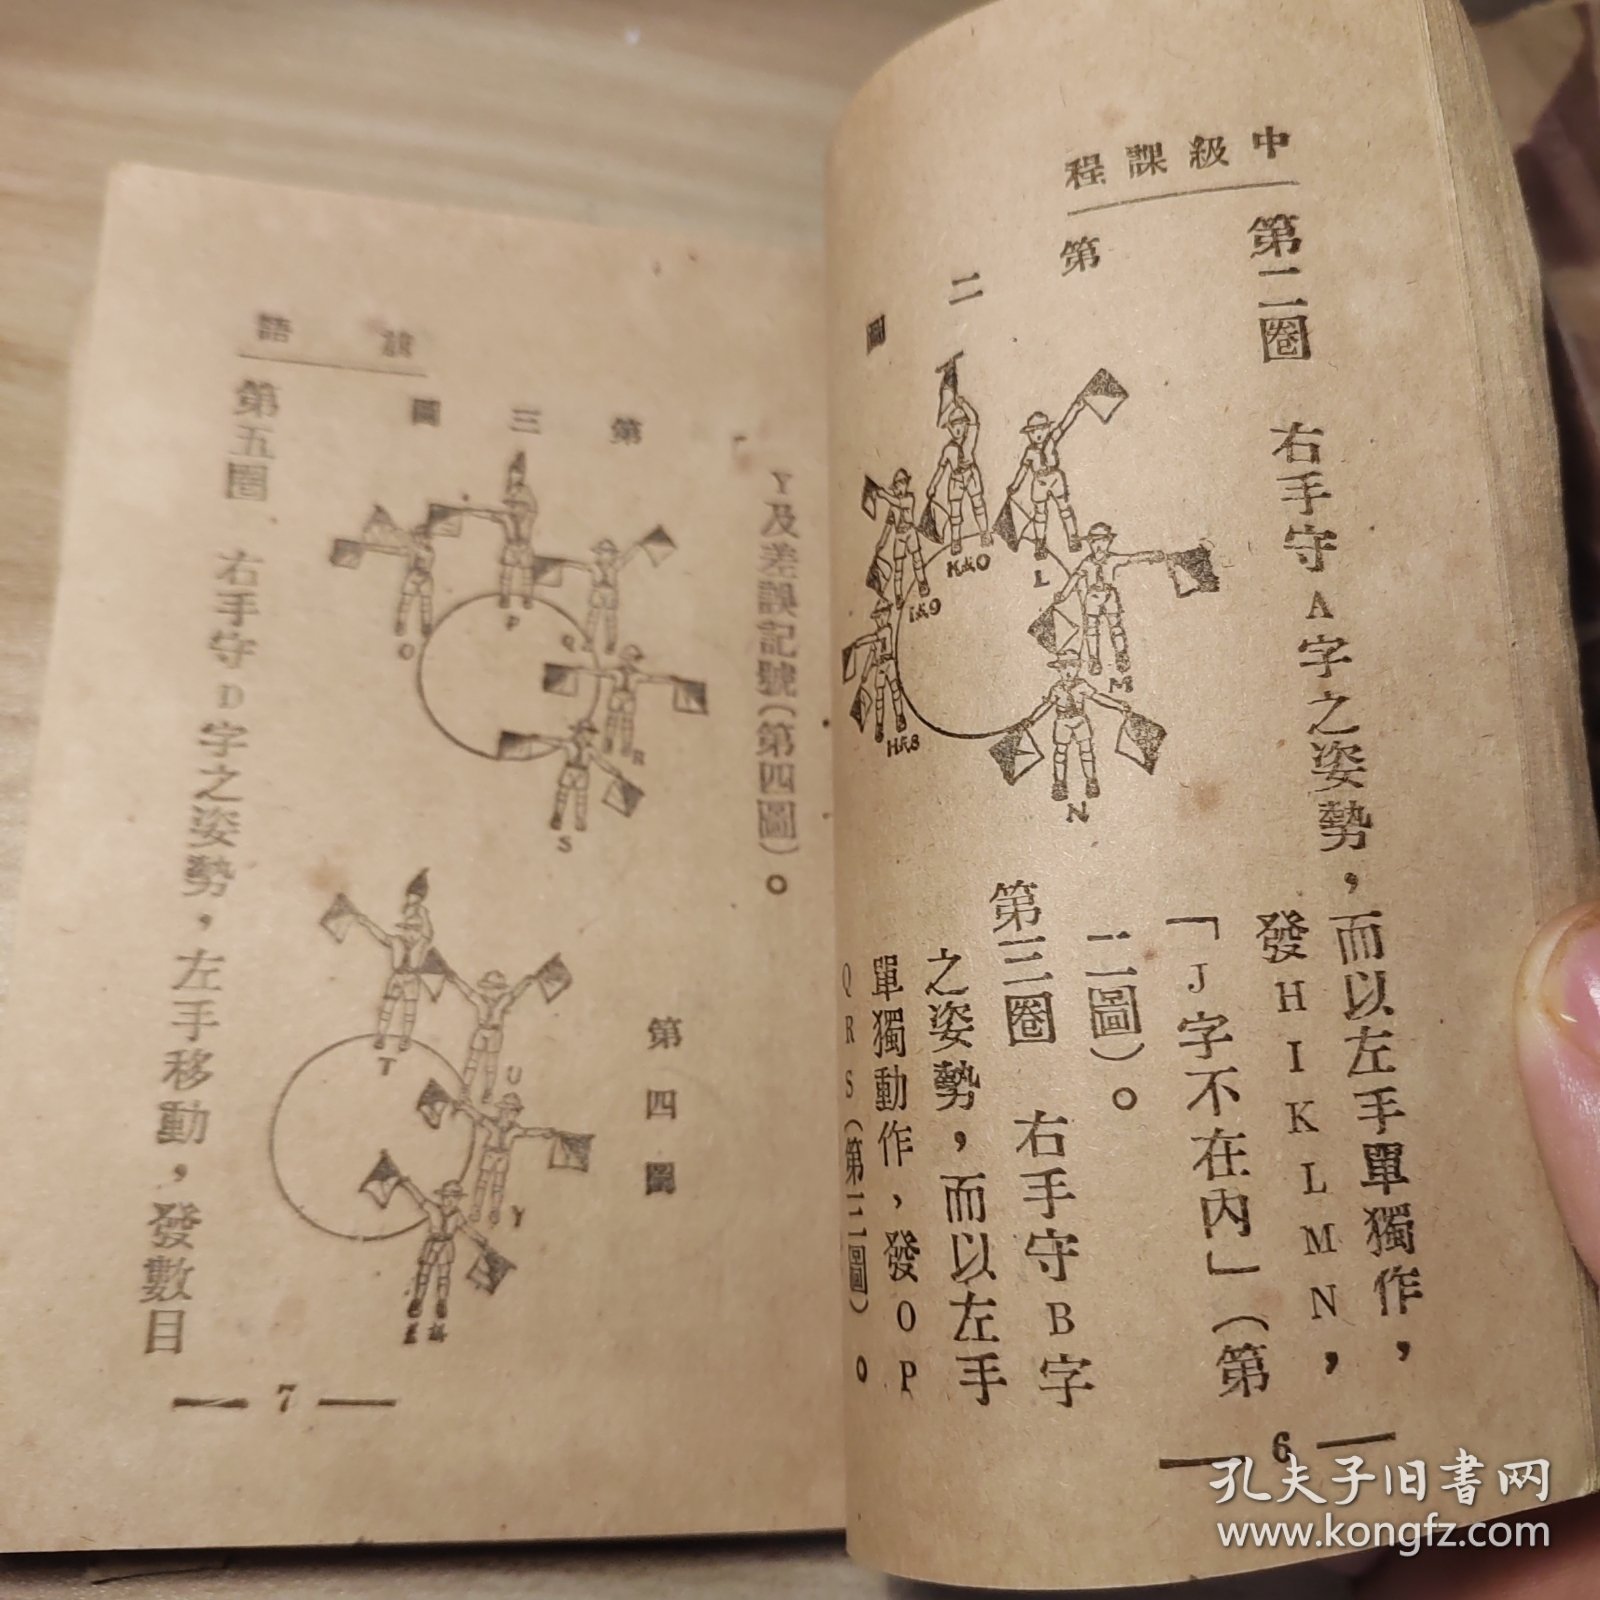 中級課程
第二圈　右手守A字之姿勢，而以左手單獨作，
發HIKLMN，
「J字不在內」（第
二圖）。
第三圈　右手守B字
之姿勢，而以左手
單獨動作，發OP
QRS（第三圖）。
第二圖
H&8
I&9
K&0
L
M
N
6
語
Y及差誤記號（第四圖）。
第三圖
O
P
Q
R
S
第四圖
T
U
Y
第五圈　右手守D字之姿勢，左手移動，發數目
7
孔夫子旧書网
www.kongfz.com